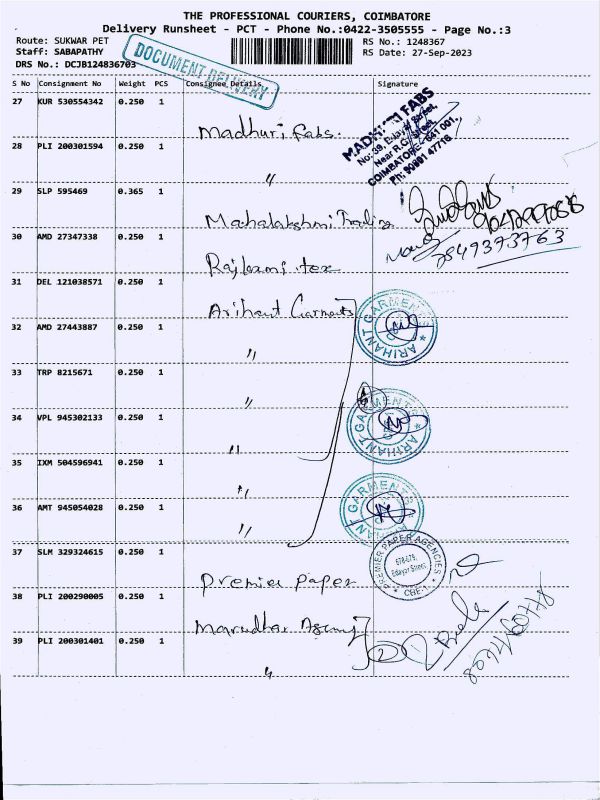 THE PROFESSIONAL COURIERS, COIMBATORE
Delivery Runsheet - PCT - Phone No.:0422-3505555 - Page No.:3
Route: SUKWAR PET
Staff: SABAPATHY
DRS No.: DCJB124836703
RS No.: 1248367
RS Date: 27-Sep-2023
DOCUMENT DELIVERY
S No Consignment No Weight PCS Consignee Details Signature
27 KUR 530554342 0.250 1
Madhuri fabs.
MADHURI FABS
COIMBATORE - 641 001.
28 PLI 200301594 0.250 1
"
29 SLP 595469 0.365 1
Mahalakshmi Trading
30 AMD 27347338 0.250 1
Rajlaxmi tex
31 DEL 121038571 0.250 1
Arihant Garments
ARIHANT GARMENTS
32 AMD 27443887 0.250 1
"
33 TRP 8215671 0.250 1
"
34 VPL 945302133 0.250 1
"
ARIHANT GARMENTS
35 IXM 504596941 0.250 1
"
36 AMT 945054028 0.250 1
"
ARIHANT GARMENTS
37 SLM 329324615 0.250 1
Premier Paper
PREMIER PAPER AGENCIES
CBE-1
38 PLI 200290005 0.250 1
39 PLI 200301401 0.250 1
"
2